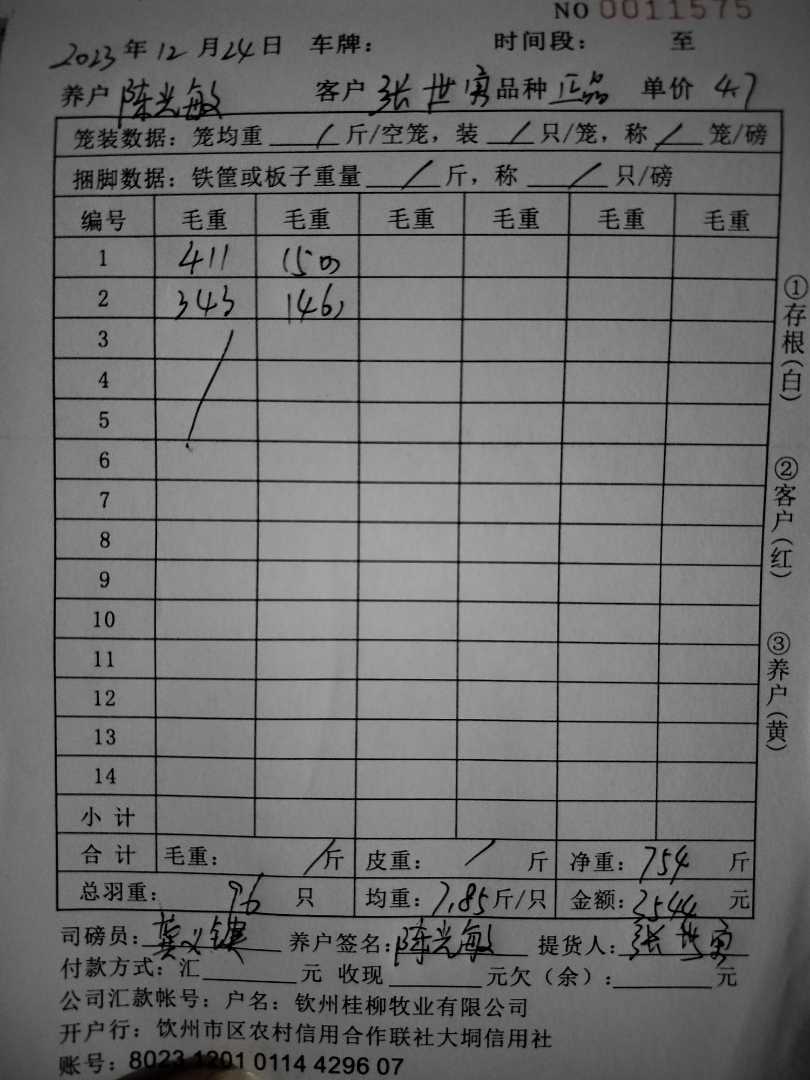 NO 0011575
2023年12月24日 车牌： 时间段： 至
养户 陈光敏 客户 张世勇 品种 正品 单价 4.7
笼装数据：笼均重 / 斤/空笼，装 / 只/笼，称 / 笼/磅
捆脚数据：铁筐或板子重量 / 斤，称 / 只/磅
编号 毛重 毛重 毛重 毛重 毛重 毛重
1 411 (50)
2 343 (46)
3
4
5
6
7
8
9
10
11
12
13
14
小计
合计 毛重： / 斤 皮重： / 斤 净重：754 斤
总羽重： 96 只 均重：7.85斤/只 金额：3544 元
司磅员： 养户签名：陈光敏 提货人：张世勇
付款方式：汇 元 收现 元欠（余）： 元
公司汇款帐号：户名：钦州桂柳牧业有限公司
开户行：饮州市区农村信用合作联社大垌信用社
账号：8023 1201 0114 4296 07
①存根（白）
②客户（红）
③养户（黄）